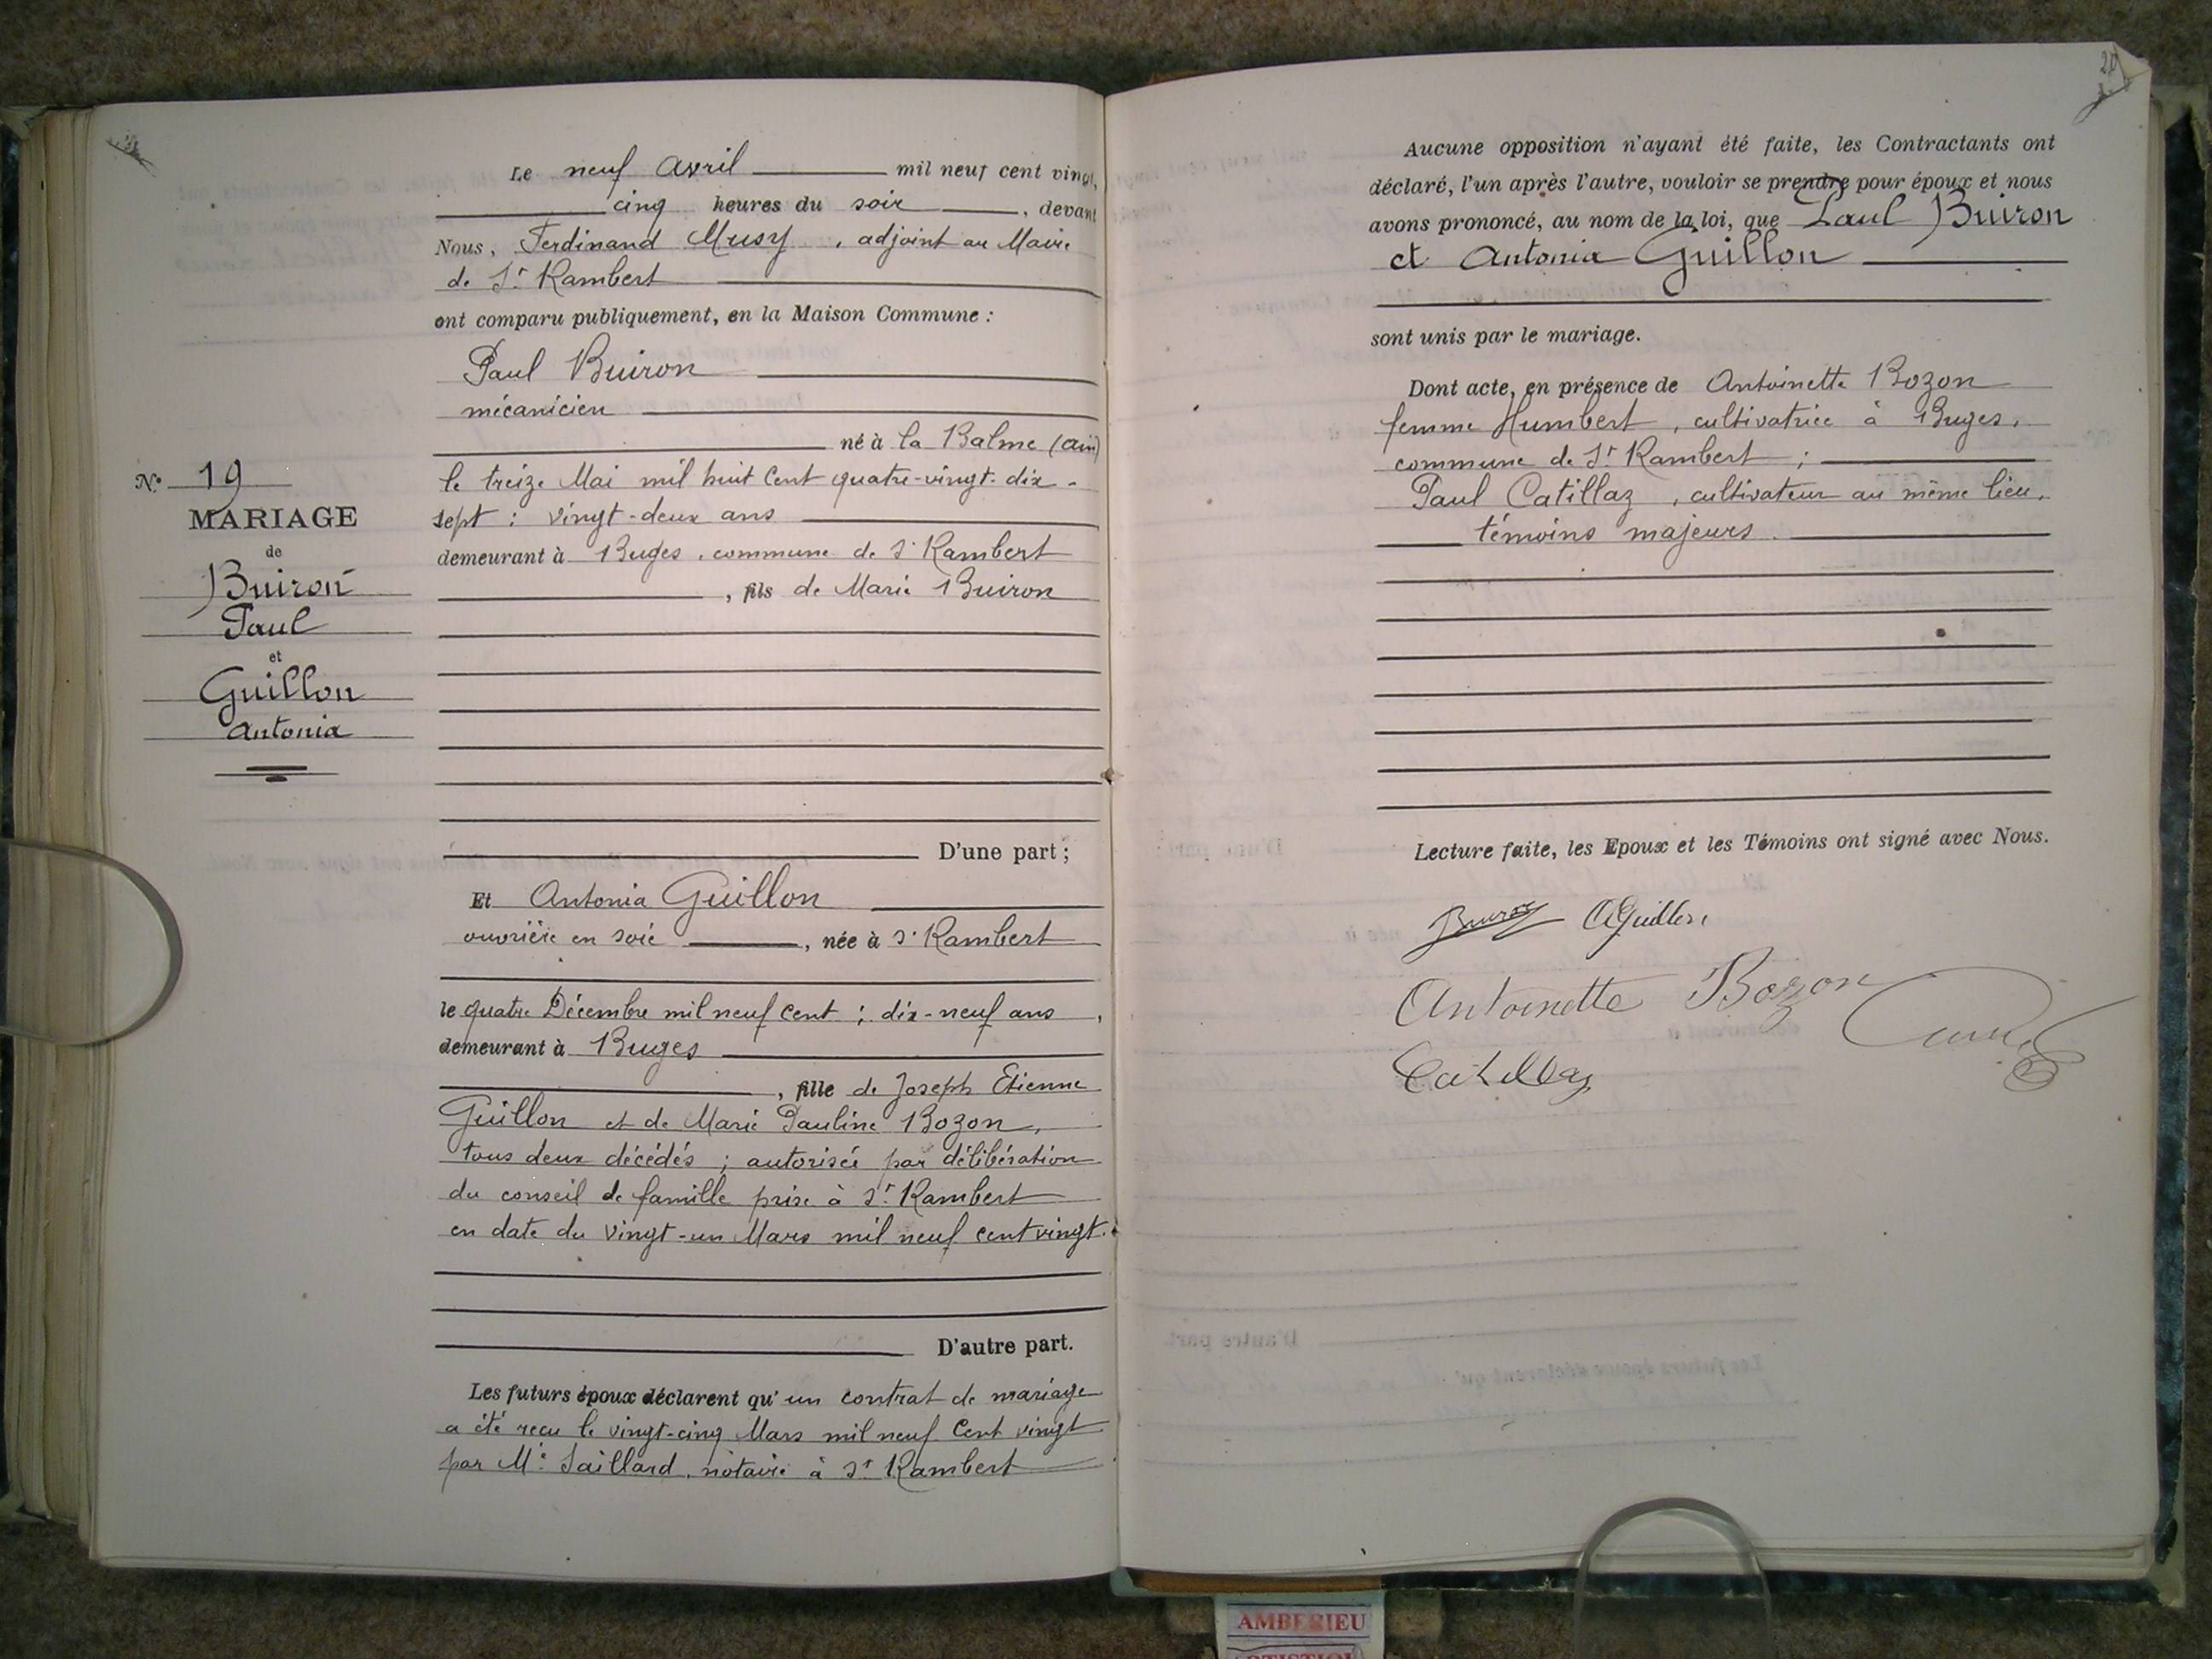 Le neuf Avril mil neuf cent vingt,
cinq heures du soir, devant
Nous, Ferdinand Musy, adjoint au Maire
de St Rambert
ont comparu publiquement, en la Maison Commune :
Paul Buiron
mécanicien
né à la Balme (Ain)
le treize Mai mil huit cent quatre-vingt-dix-
sept : vingt-deux ans
demeurant à Buges, commune de St Rambert
, fils de Marie Buiron
D'une part ;
Et Antonia Guillon
ouvrière en soie, née à St Rambert
le quatre Décembre mil neuf cent ; dix-neuf ans,
demeurant à Buges
, fille de Joseph Etienne
Guillon et de Marie Pauline Bozon,
tous deux décédés ; autorisée par délibération
du conseil de famille prise à St Rambert
en date du vingt-un Mars mil neuf cent vingt.
D'autre part.
Les futurs époux déclarent qu'un contrat de mariage
a été reçu le vingt-cinq Mars mil neuf cent vingt
par Me Saillard, notaire à St Rambert
N° 19
MARIAGE
de
Buiron
Paul
et
Guillon
Antonia
Aucune opposition n'ayant été faite, les Contractants ont
déclaré, l'un après l'autre, vouloir se prendre pour époux et nous
avons prononcé, au nom de la loi, que Paul Buiron
et Antonia Guillon
sont unis par le mariage.
Dont acte, en présence de Antoinette Bozon
femme Humbert, cultivatrice à Buges,
commune de St Rambert ;
Paul Catillaz, cultivateur au même lieu,
témoins majeurs.
Lecture faite, les Epoux et les Témoins ont signé avec Nous.
Buiron AGuillon
Antoinette Bozon
Catillaz
AMBERIEU